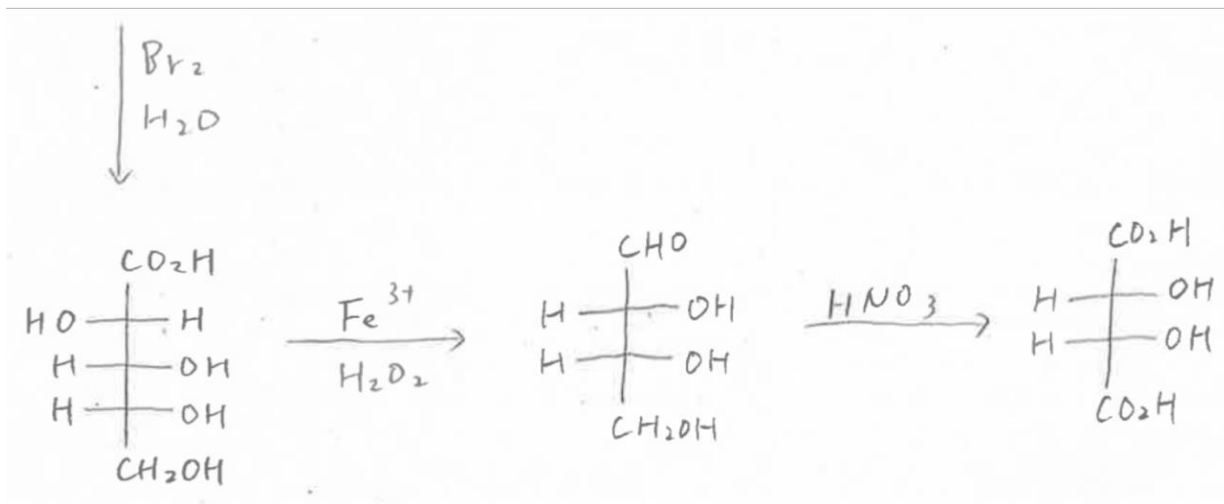 Br₂
H₂O
CO₂H
HO H
H OH
H OH
CH₂OH
Fe³⁺
H₂O₂
CHO
H OH
H OH
CH₂OH
HNO₃
CO₂H
H OH
H OH
CO₂H